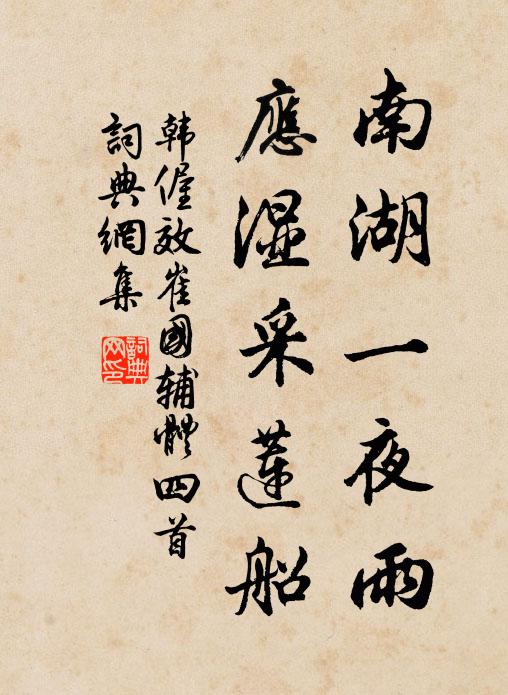 南湖一夜雨
應濕采蓮船
韩偓效崔國辅體四首
詞典網集
詞典网印